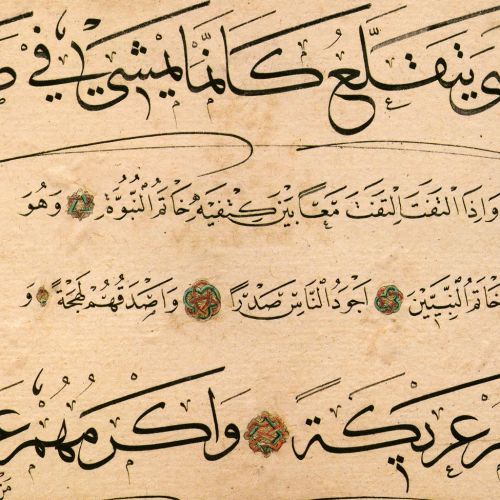 يتقلع كانما يمشي في
واذا التفت التفت معا بين كتفيه خاتم النبوة وهو
خاتم النبيين اجود الناس صدرا واصدقهم لهجة و
عريكة واكرمهم